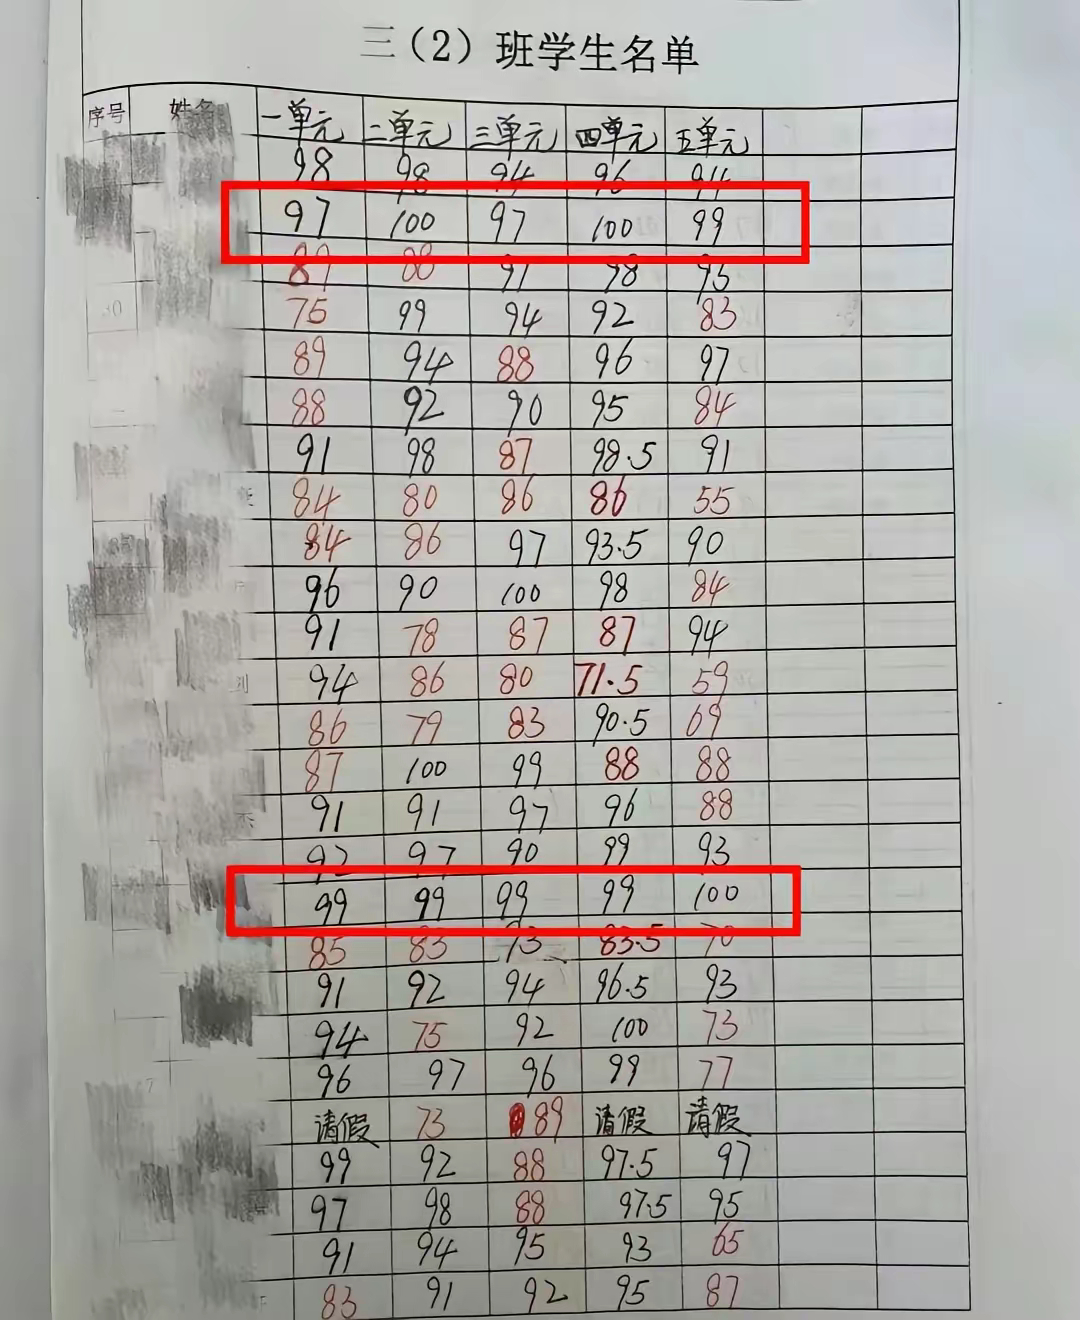 三（2）班学生名单
序号 姓名 一单元 二单元 三单元 四单元 五单元
98 98 94 96 94
97 100 97 100 99
89 88 91 98 95
75 99 94 92 83
89 94 88 96 97
88 92 90 95 84
91 98 87 98.5 91
84 80 86 86 55
84 86 97 93.5 90
96 90 100 98 84
91 78 87 87 94
94 86 80 71.5 59
86 79 83 90.5 69
87 100 99 88 88
91 91 97 96 88
92 97 90 99 93
99 99 99 99 100
85 83 93 83.5 70
91 92 94 96.5 93
94 75 92 100 73
96 97 96 99 77
请假 73 89 请假 请假
99 92 88 97.5 97
97 98 88 97.5 95
91 94 95 93 65
83 91 92 95 87